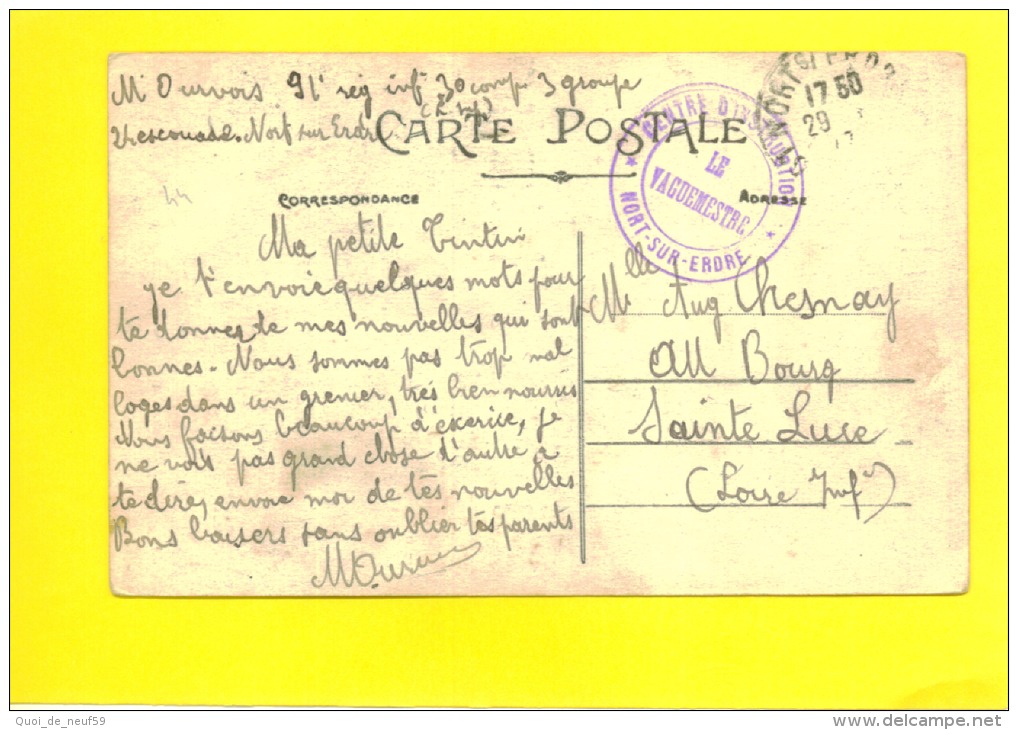 M Ourvois 91e rég inf 30 comp 3 groupe
24 escouade. Nort sur Erdre
CARTE POSTALE
CENTRE D'INSTRUCTION
LE
VAGUEMESTRE
NORT-SUR-ERDRE
17 50
29
44
CORRESPONDANCE
ADRESSE
Ma petite Tintin
je t'envoie quelques mots pour
te donner de mes nouvelles qui sont
bonnes. Nous sommes pas trop mal
logés dans un grenier, très bien nourris
Nous faisons beaucoup d'éxercice, je
ne vois pas grand chose d'autre à
te dire, envoie moi de tes nouvelles
Bons baisers sans oublier tes parents
Mlle Aug Chesnay
Au Bourg
Sainte Luce
(Loire Infre)
Quoi_de_neuf59
www.delcampe.net